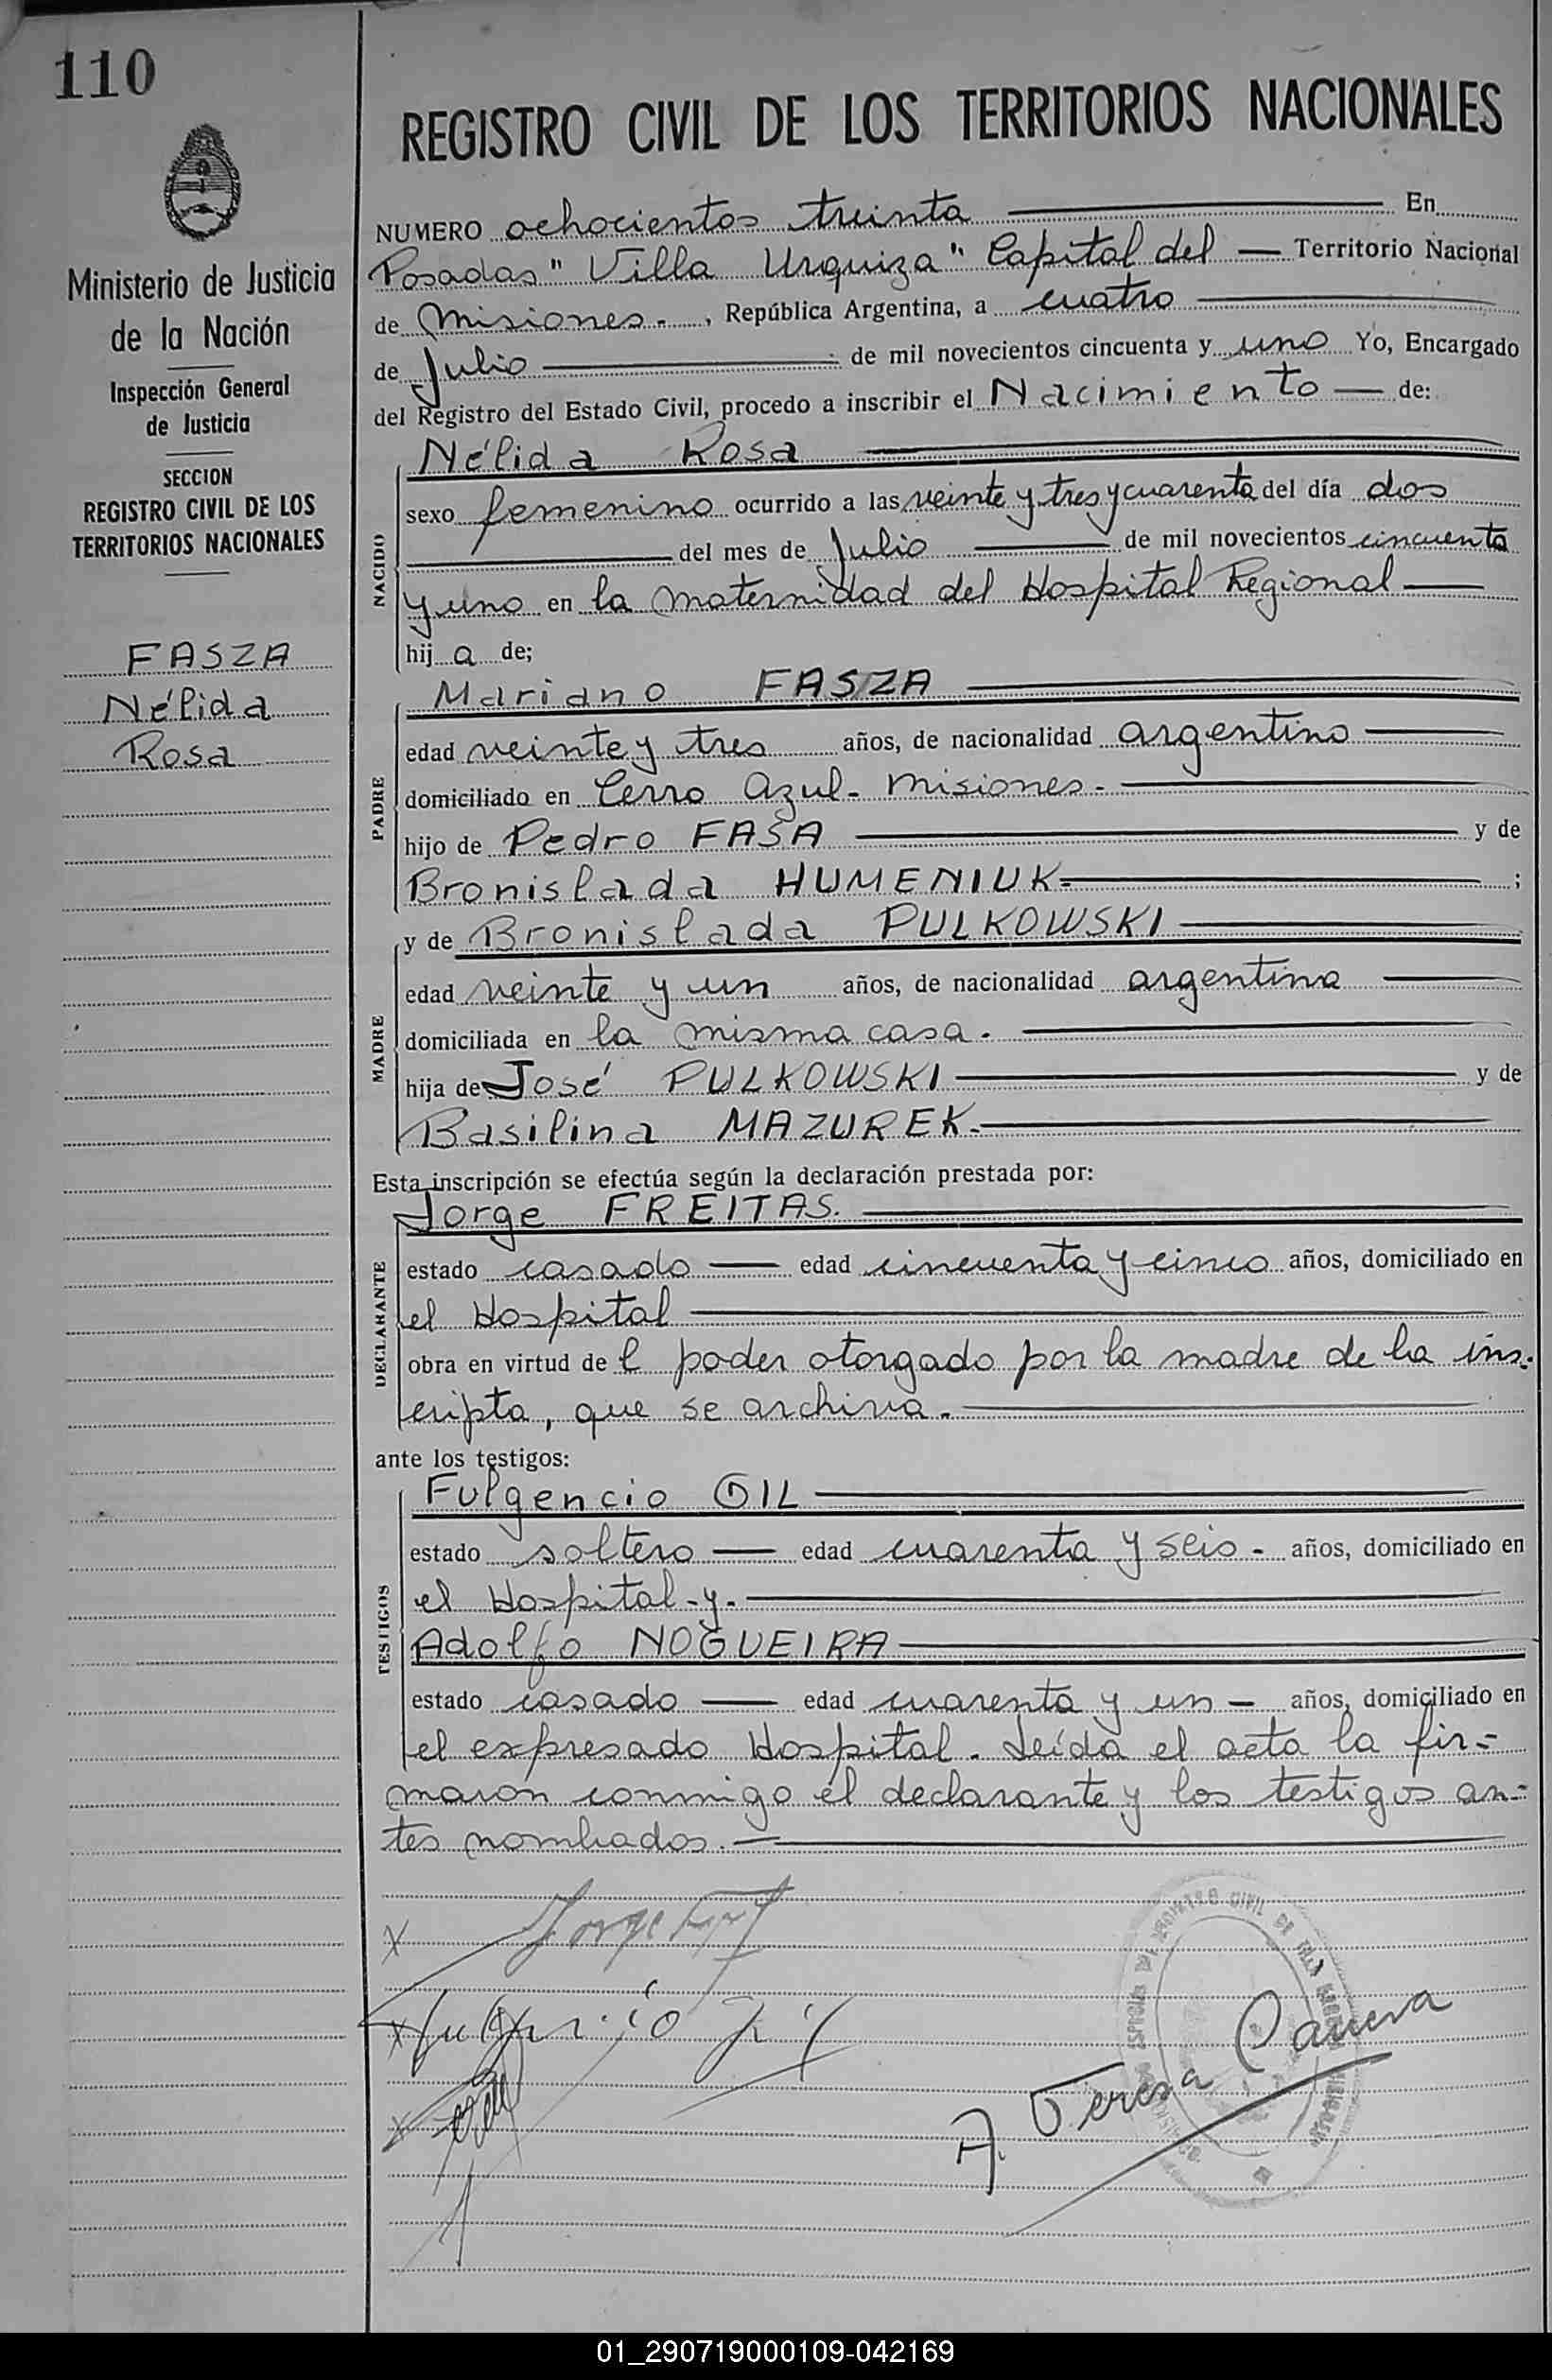 110
Ministerio de Justicia
de la Nación
Inspección General
de Justicia
SECCION
REGISTRO CIVIL DE LOS
TERRITORIOS NACIONALES
FASZA
Nélida
Rosa
REGISTRO CIVIL DE LOS TERRITORIOS NACIONALES
NUMERO ochocientos treinta En
Posadas "Villa Urquiza" Capital del Territorio Nacional
de Misiones. , República Argentina, a cuatro
de Julio de mil novecientos cincuenta y uno Yo, Encargado
del Registro del Estado Civil, procedo a inscribir el Nacimiento de:
NACIDO
Nélida Rosa
sexo femenino ocurrido a las veinte y tres y cuarenta del día dos
del mes de Julio de mil novecientos cincuenta
y uno en la maternidad del Hospital Regional
hij a de;
PADRE
Mariano FASZA
edad veinte y tres años, de nacionalidad argentino
domiciliado en Cerro Azul- Misiones.
hijo de Pedro FASA y de
Bronislada HUMENIUK- ;
MADRE
y de Bronislada PULKOWSKI
edad veinte y un años, de nacionalidad argentina
domiciliada en la misma casa.
hija de José PULKOWSKI y de
Basilina MAZUREK.
Esta inscripción se efectúa según la declaración prestada por:
DECLARANTE
Jorge FREITAS.
estado casado edad cincuenta y cinco años, domiciliado en
el Hospital
obra en virtud de l poder otorgado por la madre de la ins-
cripta, que se archiva.
ante los testigos:
TESTIGOS
Fulgencio GIL
estado soltero edad cuarenta y seis - años, domiciliado en
el Hospital - y -
Adolfo NOGUEIRA
estado casado edad cuarenta y un - años, domiciliado en
el expresado Hospital. Leída el acta la fir=
maron conmigo el declarante y los testigos an=
tes nombrados.
x Jorge
x Fulgencio Gil
x
A. Teresa Canera
REGISTRO CIVIL DE
01_290719000109-042169